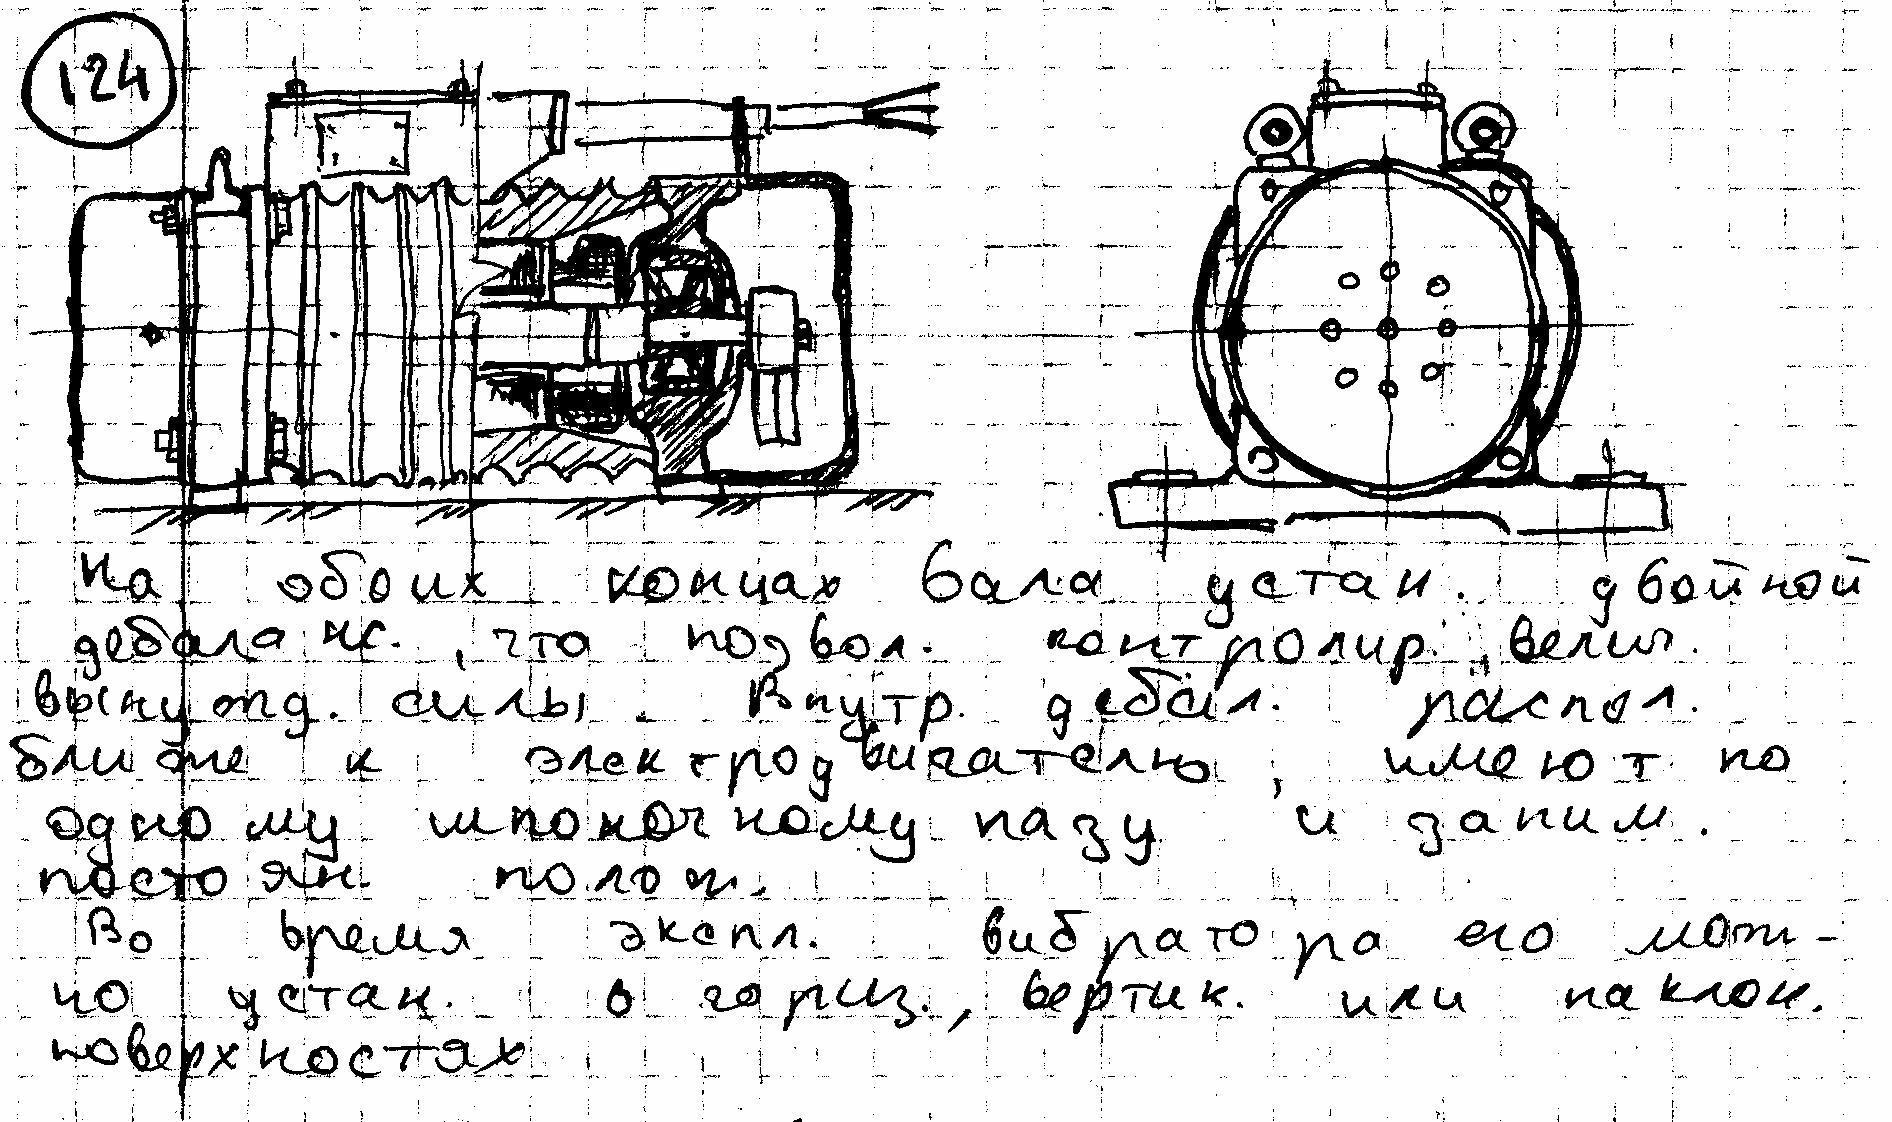 124
На обоих концах вала устан. двойной
дебаланс., что позвол. контролир. велич.
вынужд. силы. Внутр. дебал. распол.
ближе к электродвигателю, имеют по
одному шпоночному пазу и заним.
постоян. полож.
Во время экспл. вибратора его мож-
но устан. в гориз., вертик. или наклон.
поверхностях